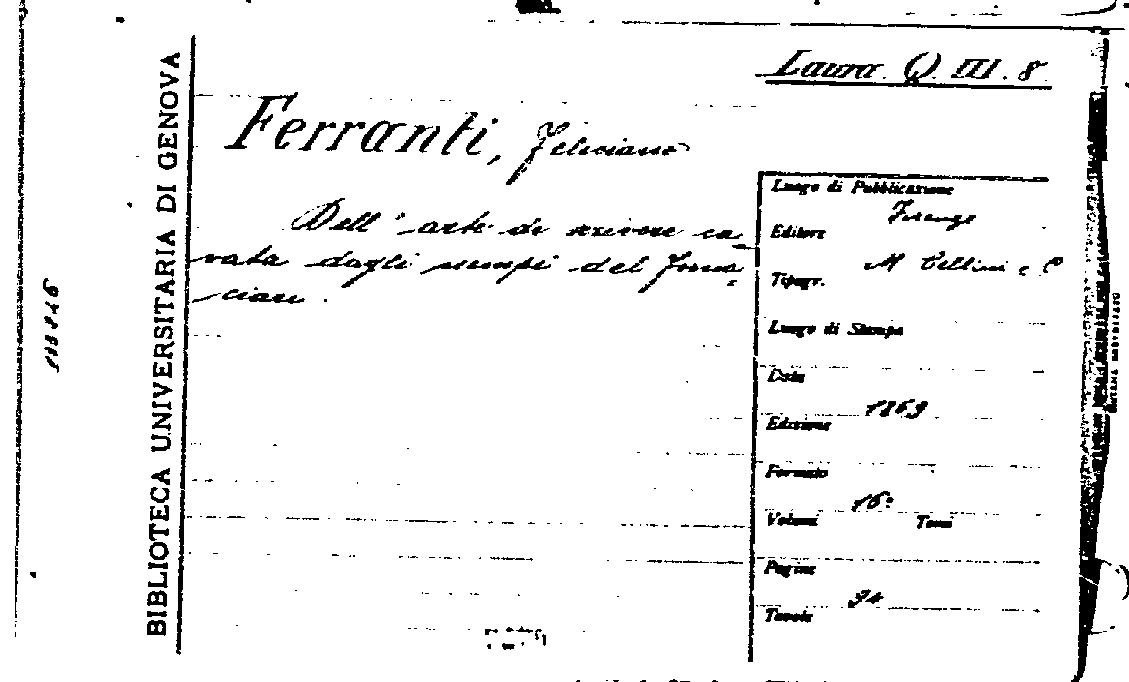 Laura Q. III. 8
Ferranti, Feliciano
Dell' arte di scrivere ca-
vata dagli esempi del Forna-
ciari.
BIBLIOTECA UNIVERSITARIA DI GENOVA
Luogo di Pubblicazione
Firenze
Editore
M Cellini e C
Tipogr.
Luogo di Stampa
Data
1869
Edizione
Formato
16º
Volumi Tomi
Pagine
94
Tavole